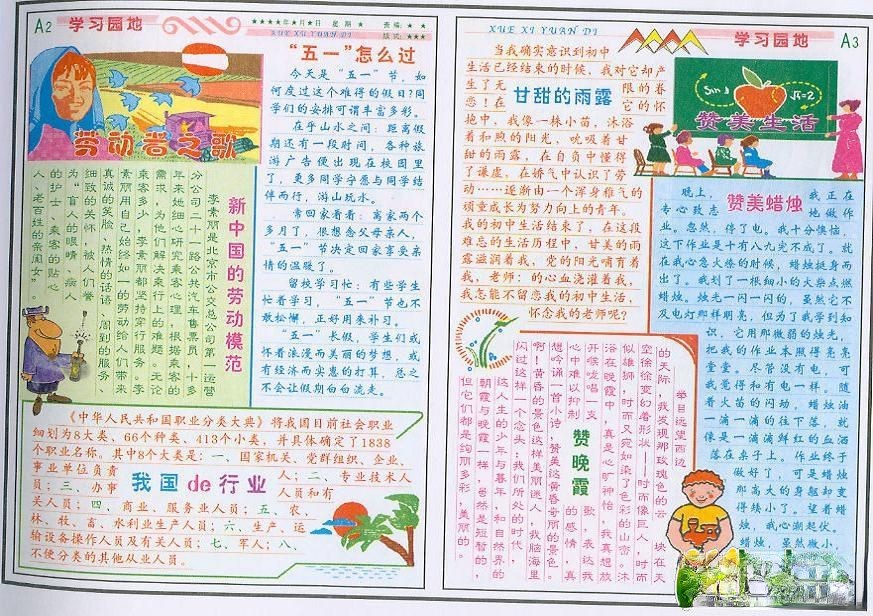 A2
学习园地
★★★★年★月★日 星期 ★
责编：★ ★
XUE XI YUAN DI
版式：★★★
劳动者之歌
“五一”怎么过
今天是“五一”节，如
何度过这个难得的假日？同
学们的安排可谓丰富多彩。
在乎山水之间：距离假
期还有一段时间，各种旅
游广告便出现在校园里
了，更多同学宁愿与同学结
伴而行，游山玩水。
常回家看看：离家两个
多月了，很想念父母亲人，
“五一”节决定回家享受亲
情的温暖了。
留校学习忙：有些学生
忙着学习，“五一”节也不
敢松懈，正好用来补习。
“五一”长假，学生们或
怀着浪漫而美丽的梦想，或
有经济而实惠的打算，总之
不会让假期白白流走。
新中国的劳动模范
李素丽是北京市公交总公司第一运营
分公司二十一路公共汽车售票员，十多
年来她细心研究乘客心理，根据乘客的
需求，为他们解决乘行上的难题。无论
乘客多少，李素丽都坚持穿行服务。李
素丽用自己始终如一的劳动给人们带来
真诚的笑脸、热情的话语、周到的服务、
细致的关怀，被人们誉
为“盲人的眼睛，病人
的护士，乘客的贴心
人，老百姓的亲闺女”。
《中华人民共和国职业分类大典》将我国目前社会职业
细划为8大类、66个种类、413个小类，并具体确定了1838
个职业名称。其中8个大类是：一、国家机关、党群组织、企业、
事业单位负责人；二、专业技术人
员；三、办事人员和有
关人员；四、商业、服务业人员；五、农、
林、牧、畜、水利业生产人员；六、生产、运
输设备操作人员及有关人员；七、军人；八、
不便分类的其他从业人员。
我国de行业
XUE XI YUAN DI
学习园地
A3
当我确实意识到初中
生活已经结束的时候，我对它却产
生了无限的眷
恋！在它的怀
抱中，我像一株小苗，沐浴
着和煦的阳光，吮吸着甘
甜的雨露，在自负中懂得
了谦虚，在娇气中认识了劳
动……逐渐由一个浑身稚气的
顽童成长为努力向上的青年。
我的初中生活结束了，在这段
难忘的生活历程中，甘美的雨
露滋润着我，党的阳光哺育着
我，老师：的心血浇灌着我，
我怎能不留恋我的初中生活，
怀念我的老师呢？
甘甜的雨露
Sin
√π=2
赞美生活
赞美蜡烛
晚上，我正在
专心致志地做作
业。忽然，停了电。我十分懊恼，
这下作业是十有八九完不成了。就
在我心急火燎的时候，蜡烛挺身而
出了。我划了一根细小的火柴点燃
蜡烛。烛光一闪一闪的，虽然它不
及电灯那样明亮，但为了我学到知
识，它用那微弱的烛光，
把我的作业本照得亮亮
堂堂。尽管没有电，可
我觉得和有电一样。随
着火苗的闪动，蜡烛油
一滴一滴的往下落，就
像是一滴滴鲜红的血洒
落在桌子上。作业终于
做好了，可是蜡烛
那高大的身躯却变
得矮小了。望着蜡
烛，我心潮起伏。
蜡烛，虽然微小，
赞晚霞
举目远望西边
的天际，我发现那玫瑰色的云块在天
空徐徐变幻着形状——时而像巨人，时而
似雄狮，时而又宛如染了色彩的山峦。沐
浴在晚霞中，真是心旷神怡，我真想放
开喉咙唱一支歌，表达我
心中难以抑制的感情，真
想吟诵一首小诗，赞美这黄昏奇丽的景色。
啊！黄昏的景色这样美丽迷人，我脑海里
闪过这样一个念头：我们所处的时代，
这人生的少年与暮年，和自然界的
朝霞与晚霞一样，虽然是短暂的，
但它们都是绚丽多彩，美丽的。